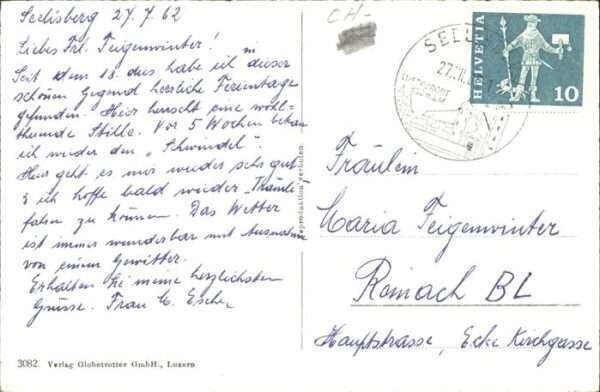 Seelisberg 27.7.62
Liebes Frl. Feigenwinter!
Seit dem 18. dies habe ich in dieser
schönen Gegend herrliche Ferientage
gefunden. Hier herrscht eine wohl=
tuende Stille. Vor 5 Wochen bekam
ich wieder den „Schwindel".
Hier geht es mir wieder sehr gut
& ich hoffe bald wieder
fahren zu können. Das Wetter
ist immer wunderbar mit Ausnahme
von einem Gewitter.
Erhalten Sie meine herzlichsten
Grüsse. Frau G. Escher
3082 Verlag Globetrotter GmbH., Luzern
Reproduktion verboten
CH-
SEELI
27.VII.
LUFTKURORT
HELVETIA
10
Fräulein
Maria Feigenwinter
Reinach BL
Hauptstrasse, Ecke Kirchgasse